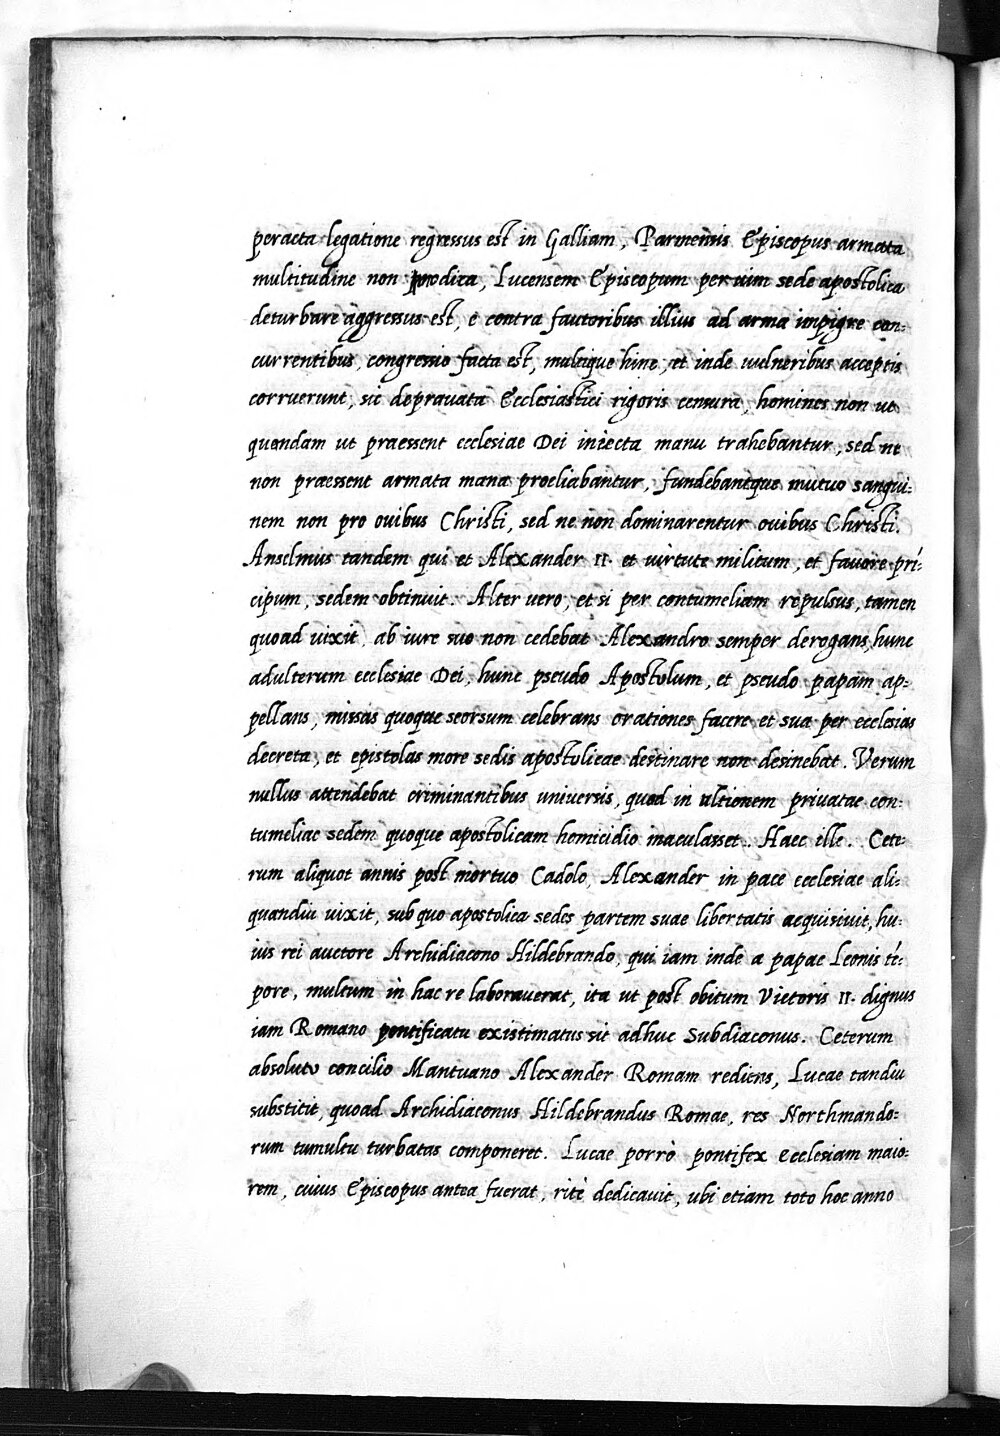 peracta legatione regressus est in Galliam, Parmensis Episcopus armata
multitudine non modica, Lucensem Episcopum per uim sede apostolica
deturbare aggressus est, e contra fautoribus illius ad arma impigre con:
currentibus, congressio facta est, multique hinc, et inde uulneribus acceptis
corruerunt, sic deprauata Ecclesiastici rigoris censura, homines non ut
quondam ut praessent ecclesiae Dei iniecta manu trahebantur, sed ne
non praessent armata manu proeliabantur, fundebantque mutuo sangui:
nem non pro ouibus Christi, sed ne non dominarentur ouibus Christi.
Anselmus tandem qui et Alexander II. et uirtute militum, et fauore prí:
cipum, sedem obtinuit. Alter uero, et si per contumeliam repulsus, tamen
quoad uixit, ab iure suo non cedebat Alexandro semper derogans, hunc
adulterum ecclesiae Dei, hunc pseudo Apostolum, et pseudo papam ap:
pellans, missas quoque seorsum celebrans orationes facere et sua per ecclesias
decreta, et epistolas more sedis apostolicae destinare non desinebat. Verum
nullus attendebat criminantibus uniuersis, quod in ultionem priuatae con:
tumeliae sedem quoque apostolicam homicidio maculasset. Haec ille. Cete:
rum aliquot annis post mortuo Cadolo, Alexander in pace ecclesiae ali:
quandiu uixit, sub quo apostolica sedes partem suae libertatis acquisiuit, hu:
ius rei auctore Archidiacono Hildebrando, qui iam inde a papae Leonis té:
pore, multum in hac re laborauerat, ita ut post obitum Victoris II. dignus
iam Romano pontificatu existimatus sit adhuc Subdiaconus. Ceterum
absoluto concilio Mantuano Alexander Romam rediens, Lucae tandiu
substitit, quoad Archidiaconus Hildebrandus Romae, res Northmando:
rum tumultu turbatas componeret. Lucae porrò pontifex ecclesiam maio:
rem, cuius Episcopus antea fuerat, ritè dedicauit, ubi etiam toto hoc anno